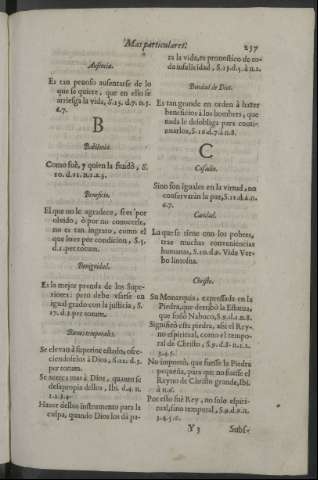 Mas particulares.
237
Ausencia.
Es tan penoso ausentarse de lo
que se quiere, que en ello se
arriesga la vida, S.13. d.7. n.5.
6.7.
B
Babilonia.
Como fuè, y quien la fundò, S.
10. d.11. n.1.2.3.
Beneficio.
El que no le agradece, si es por
olvido, ò por no conocerle,
no es tan ingrato, como el
que lo es por condicion, S.5.
d.1. per totum.
Benignidad.
Es la mejor prenda de los Supe-
riores: pero debe usarse en
igual grado con la justicia, S.
17. d.2. per totum.
Bienes temporales.
Se elevan à superior estado, ofre-
ciendoselos à Dios, S.22. d.5.
per totum.
Se acerca mas à Dios, quanto se
desapropia dellos, Ibi. d.4. n.
1.2.3.4.
Hacer dellos instrumento para la
culpa, quando Dios los dà pa-
ra la vida, es pronostico de to-
da infalicidad, S.15. d.5. à n.2.
Bondad de Dios.
Es tan grande en orden à hazer
beneficios à los hombres, que
nada le desobliga para conti-
nuarlos, S.18. d.7. à n.8.
C
Casados.
Sino son iguales en la virtud, no
conservaràn la paz, S.12. d.2. n.
6.7.
Caridad.
La que se tiene con los pobres,
trae muchas conveniencias
humanas, S.10. d.2. Vide Ver-
bo limosna.
Christo.
Su Monarquia, expressada en la
Piedra, que derribò la Estatua,
que soñò Nabuco, S.9. d.2. n.8.
Significò esta piedra, assi el Rey-
no espiritual, como el tempo-
ral de Christo, S.9. d.8. n.1.2.
3.4.5.
No importò, que fuesse la Piedra
pequeña, para que no fuesse el
Reyno de Christo grande, Ibi.
à n.6.
Por esso fuè Rey, no solo espiri-
tual, sino temporal, S.9. d.9. n.
3.4.5.6.
Y 3
Subs-